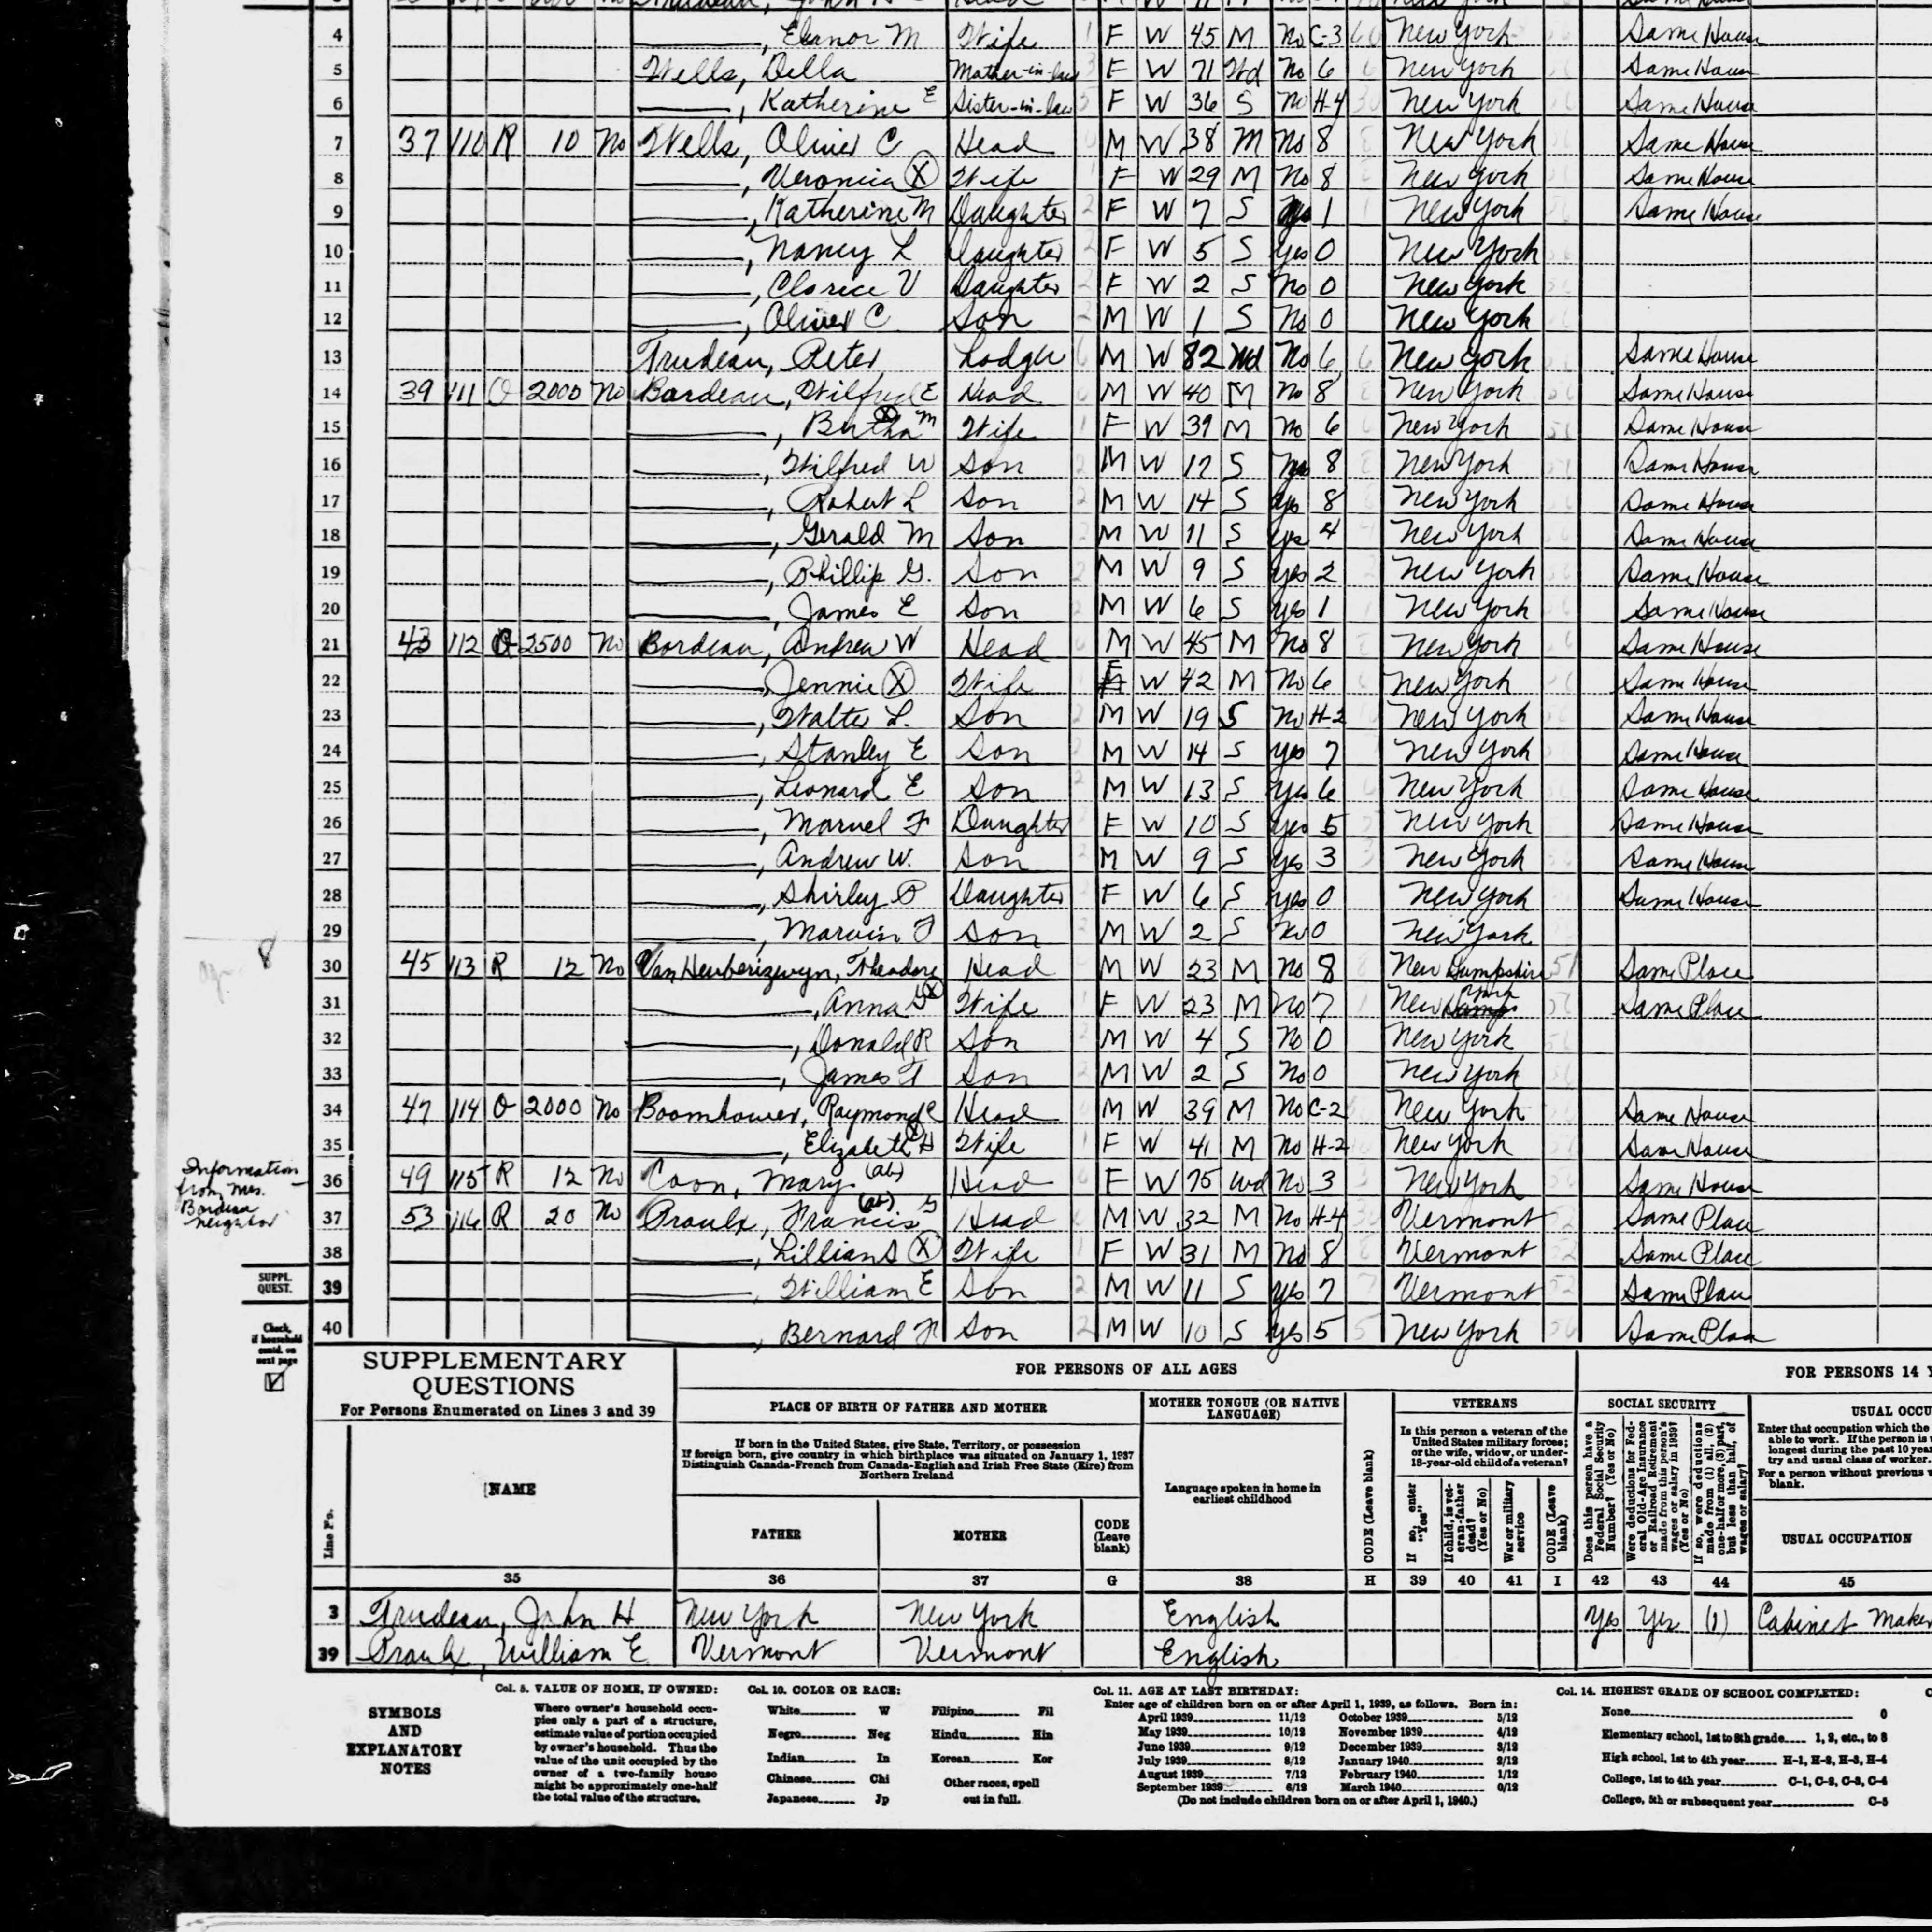 4 ———, Elenor M Wife 1 F W 45 M No C-3 60 New York 56 Same House
5 Wells, Della Mother-in-law 3 F W 71 Wd No 6 6 New York 56 Same House
6 ———, Katherine E Sister-in-law 5 F W 36 S No H-4 30 New York 56 Same House
7 37 110 R 10 No Wells, Oliver C Head 0 M W 38 M No 8 8 New York Same House
8 ———, Veronica X Wife 1 F W 29 M No 8 8 New York Same House
9 ———, Katherine M Daughter 2 F W 7 S Yes 1 1 New York Same House
10 ———, Nancy L Daughter 2 F W 5 S Yes 0 New York
11 ———, Clarice V Daughter 2 F W 2 S No 0 New York
12 ———, Oliver C Son 2 M W 1 S No 0 New York
13 Trudeau, Peter Lodger 6 M W 82 Wd No 6 6 New York Same House
14 39 111 O 2000 No Bordeau, Wilfred E Head 0 M W 40 M No 8 8 New York 56 Same House
15 ———, Bertha M X Wife 1 F W 39 M No 6 6 New York Same House
16 ———, Wilfred W Son 2 M W 17 S 8 8 New York Same House
17 ———, Robert L Son 2 M W 14 S Yes 8 New York Same House
18 ———, Gerald M Son 2 M W 11 S Yes 4 New York Same House
19 ———, Phillip G. Son 2 M W 9 S Yes 2 2 New York Same House
20 ———, James E Son 2 M W 6 S Yes 1 1 New York Same House
21 43 112 O 2500 No Bordeau, Andrew W Head 0 M W 45 M No 8 8 New York Same House
22 ———, Jennie X Wife 1 F W 42 M No 6 6 New York Same House
23 ———, Walter L. Son 2 M W 19 S No H-2 New York Same House
24 ———, Stanley E Son 2 M W 14 S Yes 7 New York Same House
25 ———, Leonard E Son 2 M W 13 S Yes 6 New York Same House
26 ———, Marvel F Daughter 2 F W 10 S Yes 5 New York Same House
27 ———, Andrew W. Son 2 M W 9 S Yes 3 3 New York Same House
28 ———, Shirley P Daughter 2 F W 6 S Yes 0 New York Same House
29 ———, Marvin F Son 2 M W 2 S No 0 New York
8
30 45 113 R 12 No Theodore Head M W 23 M No 8 8 New Hampshire 51 Same Place
31 ———, Anna X Wife 1 F W 23 M No 7 New York Same Place
32 ———, Donald R Son M W 4 S No 0 New York
33 ———, James F Son M W 2 S No 0 New York
34 47 114 O 2000 No Boomhower, Raymond C Head M W 39 M No C-2 New York Same House
35 ———, Elizabeth H X Wife 1 F W 41 M No H-2 New York Same House
Information from Mrs. Bordeau neighbor
36 49 115 R 12 No Coon, Mary (ab) Head F W 75 Wd No 3 3 New York Same House
37 53 116 R 20 No Proulx, Francis G (ab) Head M W 32 M No H-4 30 Vermont 52 Same Place
38 ———, Lillian S X Wife 1 F W 31 M No 8 8 Vermont 52 Same Place
SUPPL. QUEST. 39 ———, William E Son 2 M W 11 S Yes 7 7 Vermont 52 Same Place
40 ———, Bernard F Son 2 M W 10 S Yes 5 5 New York 56 Same Place
Check, if household contd. on next page
SUPPLEMENTARY QUESTIONS
For Persons Enumerated on Lines 3 and 39
FOR PERSONS OF ALL AGES
FOR PERSONS 14 Y
PLACE OF BIRTH OF FATHER AND MOTHER
If born in the United States, give State, Territory, or possession
If foreign born, give country in which birthplace was situated on January 1, 1937
Distinguish Canada-French from Canada-English and Irish Free State (Eire) from Northern Ireland
MOTHER TONGUE (OR NATIVE LANGUAGE)
Language spoken in home in earliest childhood
CODE (Leave blank)
VETERANS
Is this person a veteran of the United States military forces; or the wife, widow, or under-18-year-old child of a veteran?
If so, enter "Yes"
If child, is veteran-father dead? (Yes or No)
War or military service
CODE (Leave blank)
SOCIAL SECURITY
Does this person have a Federal Social Security Number? (Yes or No)
Were deductions for Federal Old-Age Insurance or Railroad Retirement made from this person's wages or salary in 1939? (Yes or No)
If so, were deductions made from (1) all, (2) one-half or more, (3) part, but less than half, of wages or salary?
USUAL OCCU
Enter that occupation which the
able to work. If the person is
longest during the past 10 year
try and usual class of worker.
For a person without previous
blank.
Line No.
NAME
FATHER
MOTHER
CODE (Leave blank)
USUAL OCCUPATION
35 36 37 G 38 H 39 40 41 I 42 43 44 45
3 Trudeau, John H New York New York English Yes Yes (1) Cabinet Maker
39 Proulx, William E Vermont Vermont English
SYMBOLS AND EXPLANATORY NOTES
Col. 5. VALUE OF HOME, IF OWNED:
Where owner's household occu-
pies only a part of a structure,
estimate value of portion occupied
by owner's household. Thus the
value of the unit occupied by the
owner of a two-family house
might be approximately one-half
the total value of the structure.
Col. 10. COLOR OR RACE:
White W Filipino Fil
Negro Neg Hindu Hin
Indian In Korean Kor
Chinese Chi Other races, spell
Japanese Jp out in full.
Col. 11. AGE AT LAST BIRTHDAY:
Enter age of children born on or after April 1, 1939, as follows. Born in:
April 1939 11/12 October 1939 5/12
May 1939 10/12 November 1939 4/12
June 1939 9/12 December 1939 3/12
July 1939 8/12 January 1940 2/12
August 1939 7/12 February 1940 1/12
September 1939 6/12 March 1940 0/12
(Do not include children born on or after April 1, 1940.)
Col. 14. HIGHEST GRADE OF SCHOOL COMPLETED:
None 0
Elementary school, 1st to 8th grade 1, 2, etc., to 8
High school, 1st to 4th year H-1, H-2, H-3, H-4
College, 1st to 4th year C-1, C-2, C-3, C-4
College, 5th or subsequent year C-5